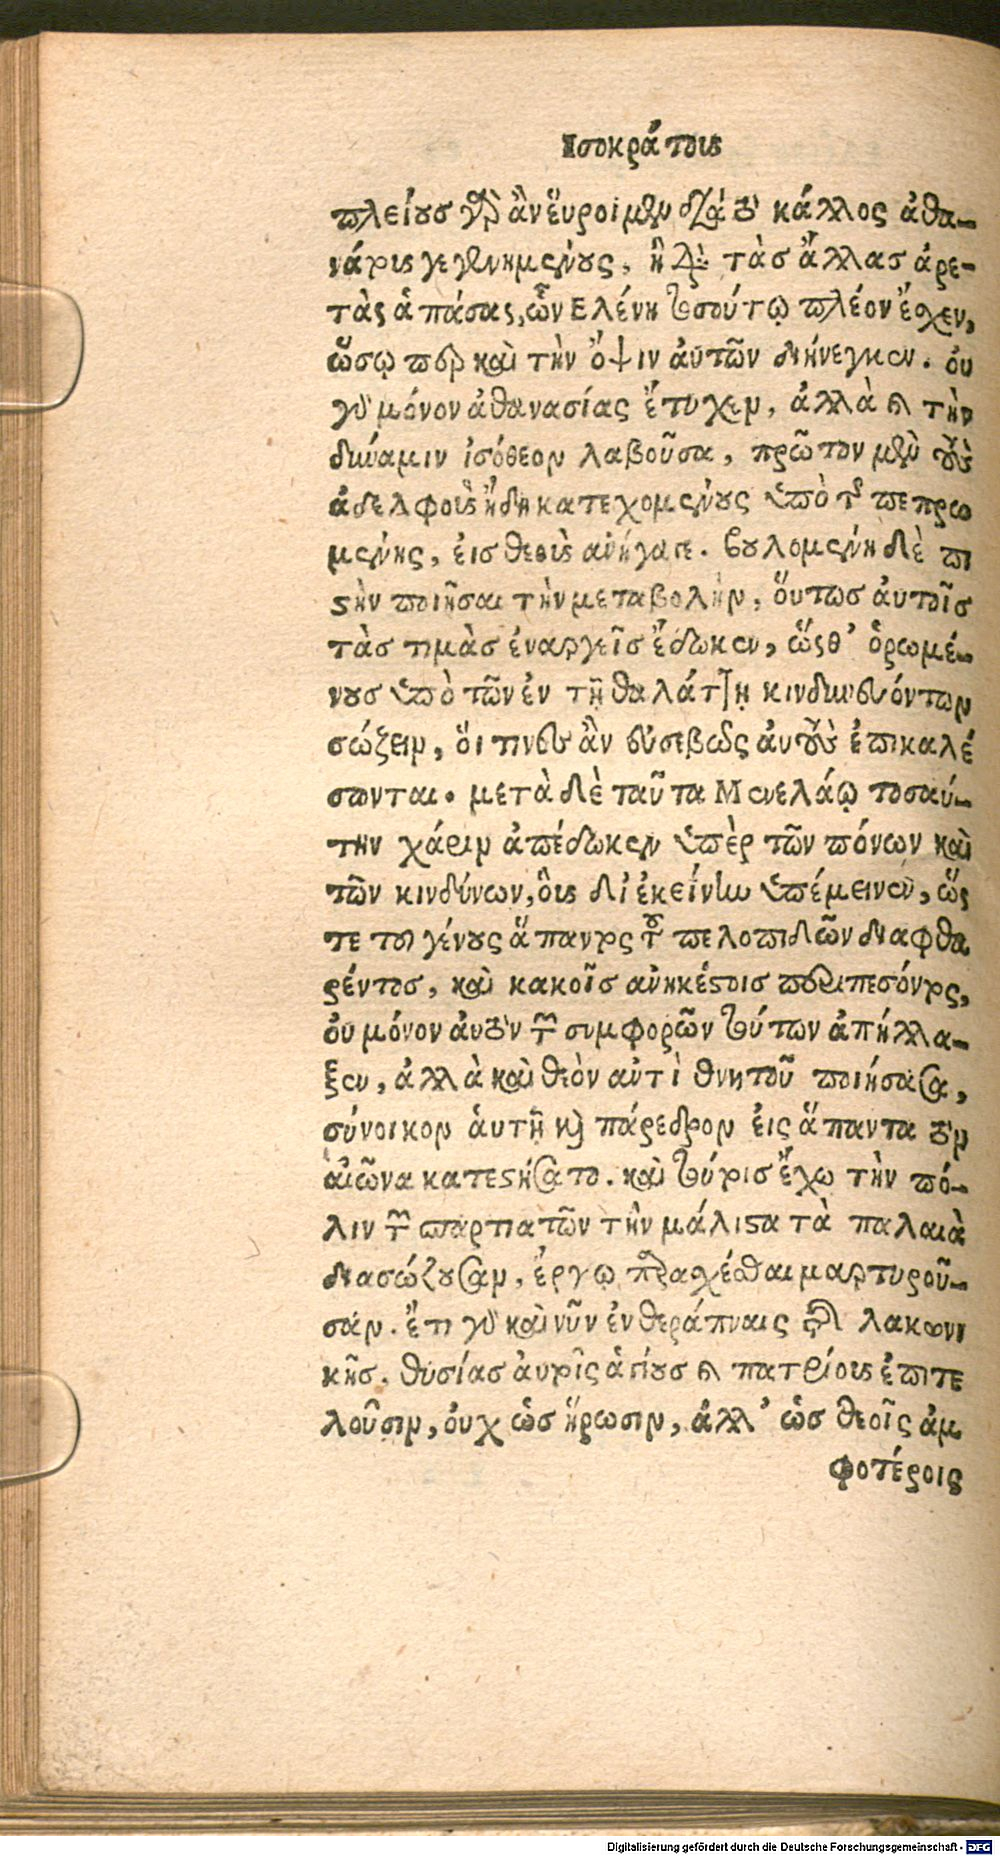 Ισοκράτους
πλείους γὰρ ἂν εὕροιμεν διὰ τὸ κάλλος ἀθα-
νάτους γεγενημένους, ἢ διὰ τὰς ἄλλας ἀρε-
τὰς ἁπάσας, ὧν Ελένη τοσούτῳ πλέον ἔσχεν,
ὅσῳ περ καὶ τὴν ὄψιν αὐτῶν διήνεγκεν. οὐ
γὰρ μόνον ἀθανασίας ἔτυχεν, ἀλλὰ καὶ τὴν
δύναμιν ἰσόθεον λαβοῦσα, πρῶτον μὲν τοὺς
ἀδελφοὺς ἤδη κατεχομένους ὑπὸ τῆς πεπρω
μένης, εἰς θεοὺς ἀνήγαγε. βουλομένη δὲ πι
στὴν ποιῆσαι τὴν μεταβολὴν, οὕτως αὐτοῖς
τὰς τιμὰς ἐναργεῖς ἔδωκεν, ὥσθ’ ὁρωμέ-
νους ὑπὸ τῶν ἐν τῇ θαλάττῃ κινδυνευόντων
σώζειν, οἵ τινες ἂν εὐσεβῶς αὐτοὺς ἐπικαλέ
σωνται. μετὰ δὲ ταῦτα Μενελάῳ τοσαύ-
την χάριν ἀπέδωκεν ὑπὲρ τῶν πόνων καὶ
τῶν κινδύνων, οὓς δι’ ἐκείνην ὑπέμεινεν, ὥς
τε τοῦ γένους ἅπαντος τοῦ πελοπιδῶν διαφθα
ρέντος, καὶ κακοῖς ἀνηκέστοις περιπεσόντος,
οὐ μόνον αὐτὸν τῶν συμφορῶν τούτων ἀπήλλα-
ξεν, ἀλλὰ καὶ θεὸν ἀντὶ θνητοῦ ποιήσασα,
σύνοικον ἁυτῇ καὶ πάρεδρον εἰς ἅπαντα τὸν
αἰῶνα κατεστήσατο. καὶ τούτοις ἔχω τὴν πό-
λιν τῶν σπαρτιατῶν τὴν μάλιστα τὰ παλαιὰ
διασώζουσαν, ἔργῳ παρασχέσθαι μαρτυροῦ-
σαν. ἔτι γὰρ καὶ νῦν ἐν θεράπναις τῆς λακωνι
κῆς. θυσίας αὐτοῖς ἁγίους καὶ πατρίους ἐπιτε
λοῦσιν, οὐχ ὡς ἥρωσιν, ἀλλ’ ὡς θεοῖς ἀμ
φοτέροις
Digitalisierung gefördert durch die Deutsche Forschungsgemeinschaft - DFG